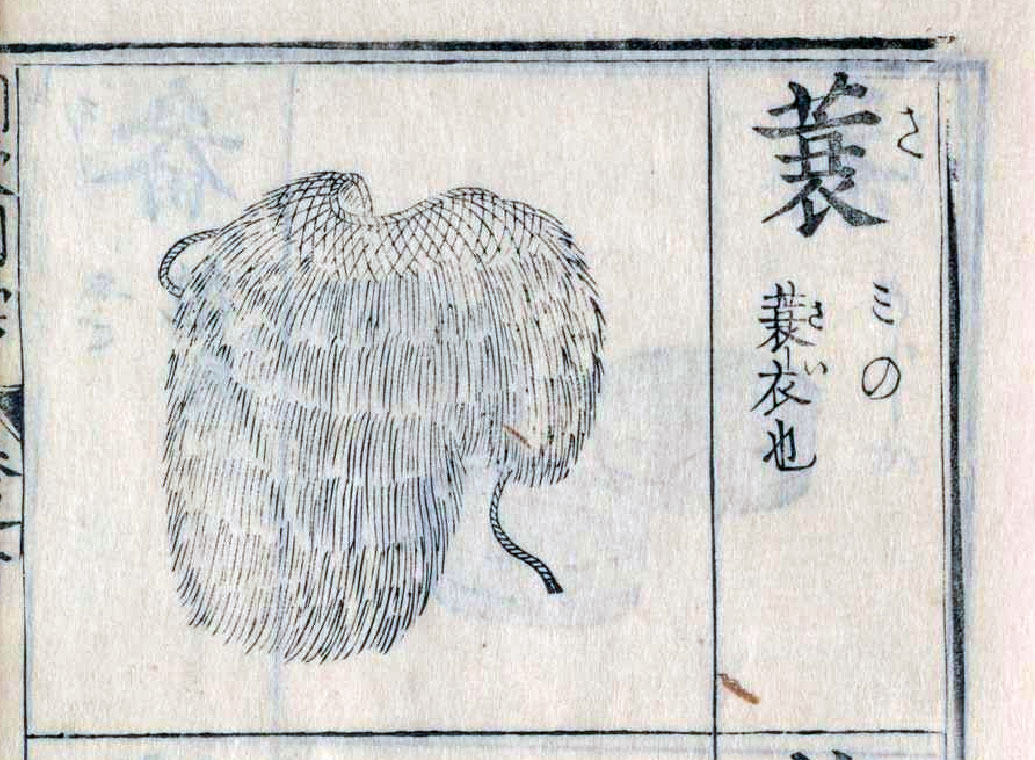 蓑 さ
ミの
蓑衣也 さい